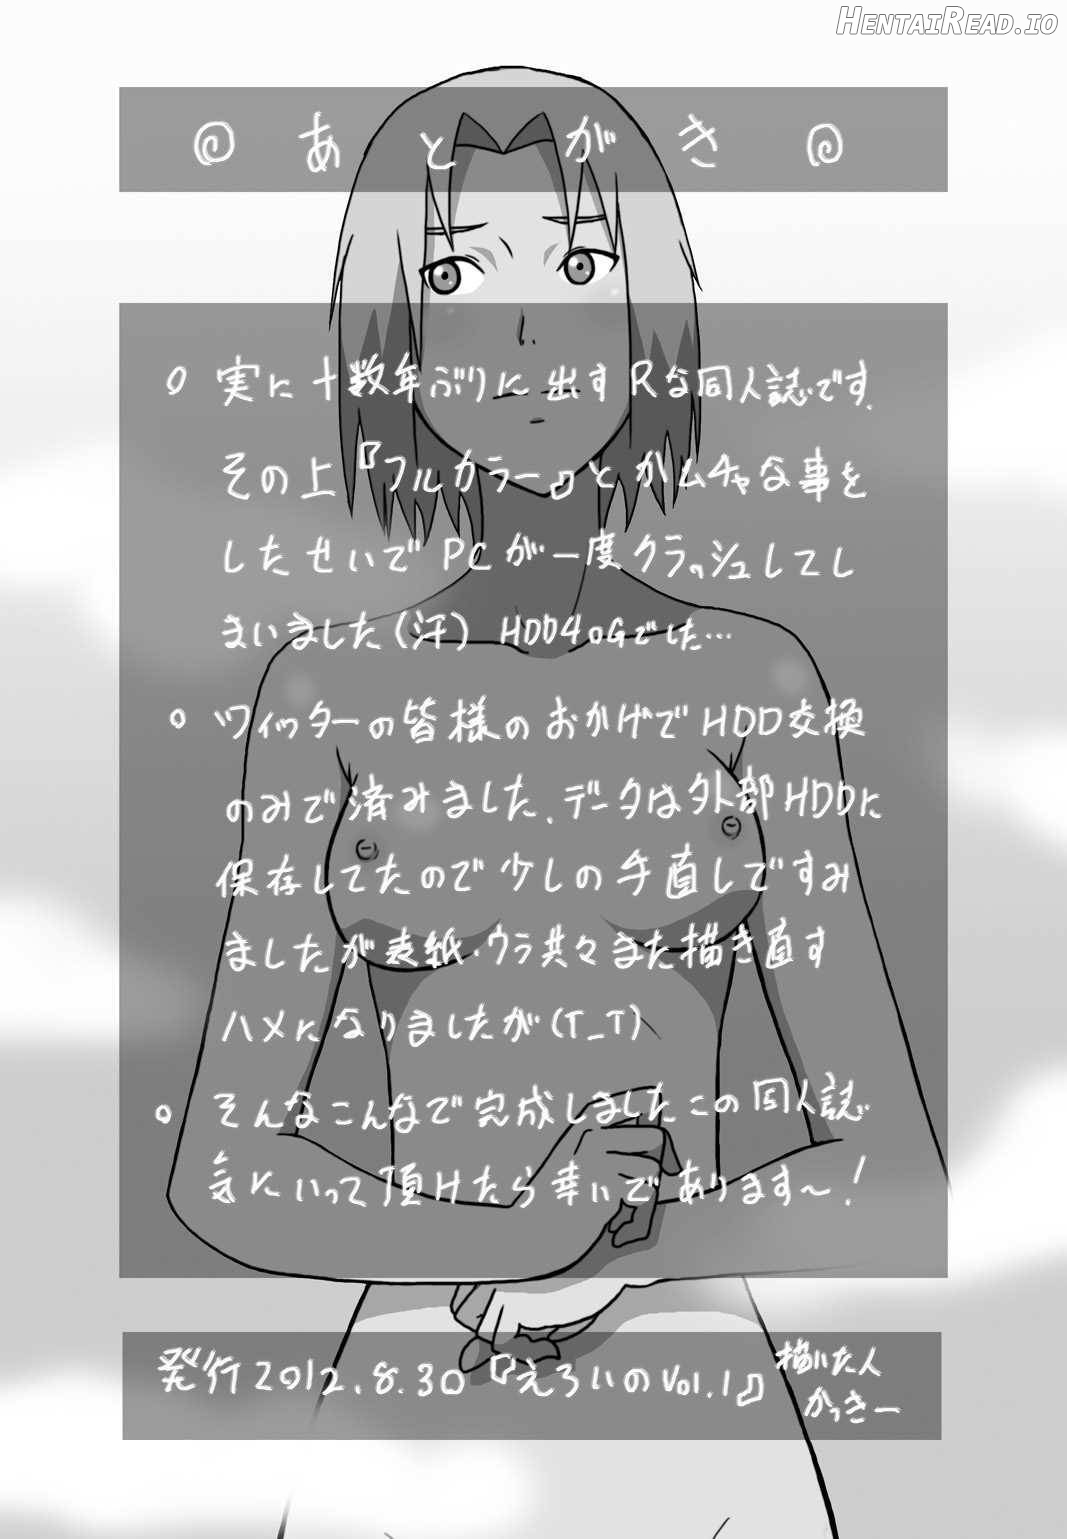 HentaiRead.io
◎あとがき◎
○ 実に十数年ぶりに出すRな同人誌です.
その上『フルカラー』とかムチャな事を
したせいでPCが一度クラッシュしてし
まいました(汗) HDD40Gでした…
○ ツイッターの皆様のおかげでHDD交換
のみで済みました. データは外部HDDに
保存してたので少しの手直しですみ
ましたが表紙・ウラ共々また描き直す
ハメになりましたが(T_T)
○ そんなこんなで完成しましたこの同人誌
気にいって頂けたら幸いであります〜!
発行2012.8.30『えろいのVol.1』描いた人
かっきー